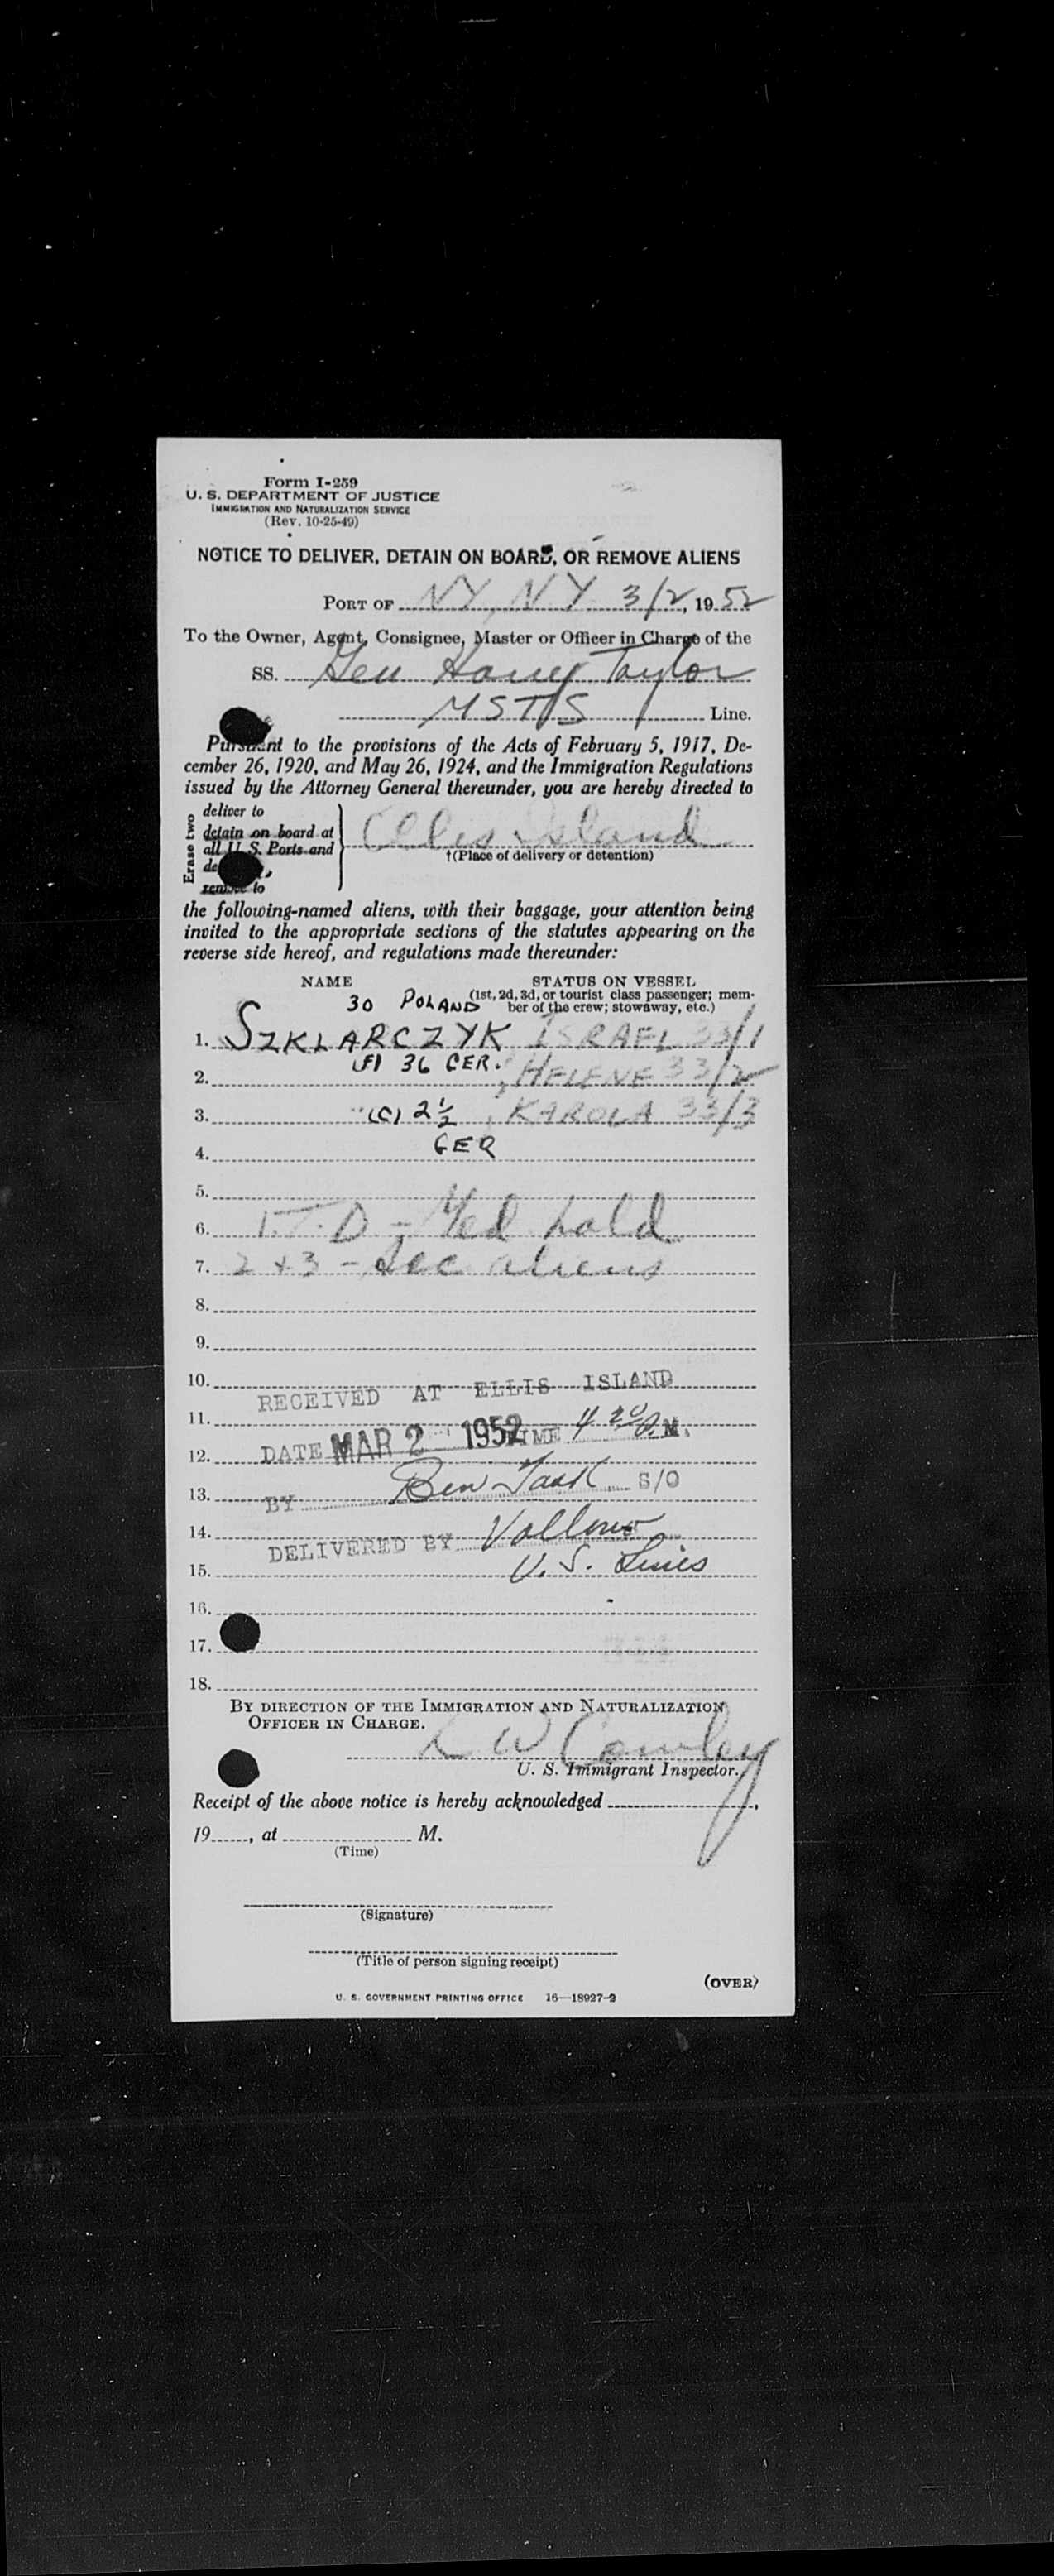 Form I-259
U. S. DEPARTMENT OF JUSTICE
IMMIGRATION AND NATURALIZATION SERVICE
(Rev. 10-25-49)
NOTICE TO DELIVER, DETAIN ON BOARD, OR REMOVE ALIENS
PORT OF NY, NY 3/2, 1952
To the Owner, Agent, Consignee, Master or Officer in Charge of the
SS. Gen Harry Taylor
MSTS Line.
Pursuant to the provisions of the Acts of February 5, 1917, De-
cember 26, 1920, and May 26, 1924, and the Immigration Regulations
issued by the Attorney General thereunder, you are hereby directed to
Erase two
deliver to
detain on board at
all U. S. Ports and
remove to
Ellis Island
†(Place of delivery or detention)
the following-named aliens, with their baggage, your attention being
invited to the appropriate sections of the statutes appearing on the
reverse side hereof, and regulations made thereunder:
NAME STATUS ON VESSEL
30 POLAND (1st, 2d, 3d, or tourist class passenger; mem-
ber of the crew; stowaway, etc.)
1. SZKLARCZYK ISRAEL 33/1
2. (F) 36 GER. , HELENE 33/2
3. " (C) 2½ , KAROLA 33/3
4. GER
5.
6. 1. T.D - Med hold
7. 2 + 3 - Acc aliens
8.
9.
10. RECEIVED AT ELLIS ISLAND
11.
12. DATE MAR 2 1952 TIME 4 20 P.M.
13. BY Ben S/O
14. DELIVERED BY
15. U. S. Lines
16.
17.
18.
BY DIRECTION OF THE IMMIGRATION AND NATURALIZATION
OFFICER IN CHARGE.
L W Cowley
U. S. Immigrant Inspector.
Receipt of the above notice is hereby acknowledged ,
19 , at M.
(Time)
(Signature)
(Title of person signing receipt)
(OVER)
U. S. GOVERNMENT PRINTING OFFICE 16—18927-2